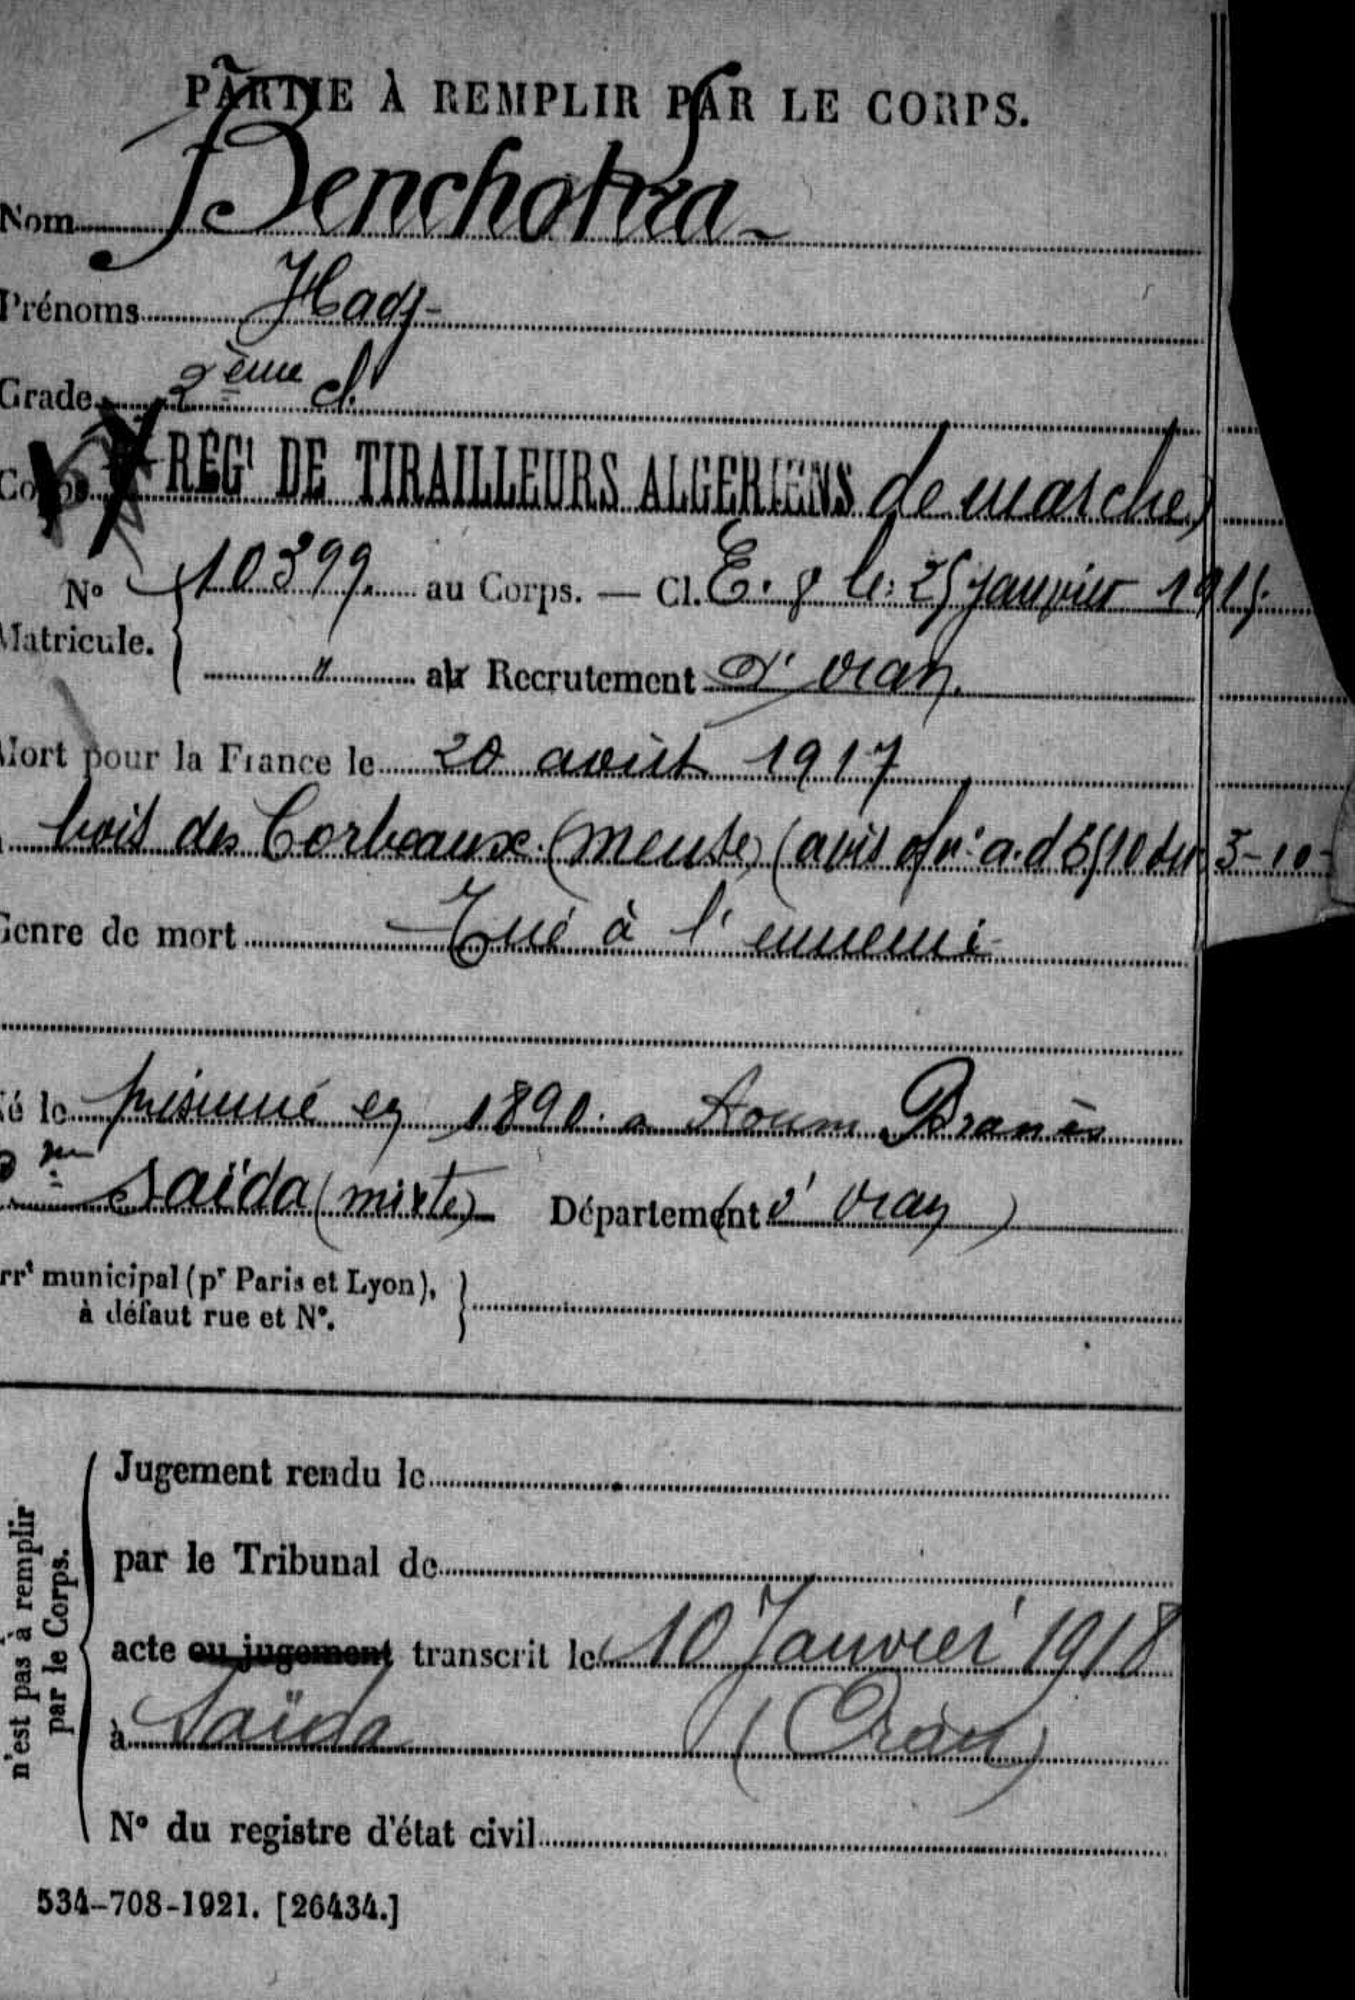 PARTIE À REMPLIR PAR LE CORPS.
Nom Benchohra
Prénoms Hadj
Grade 2ème cl.
REGt DE TIRAILLEURS ALGERIENS de marche
No 10399 au Corps. — Cl. E. le 25 janvier 1915
Matricule. " au Recrutement d'Oran
Mort pour la France le 20 août 1917
bois des Corbeaux (Meuse) (avis du 3-10-
Genre de mort Tué à l'ennemi
Né le présumé en 1890 à Aoum Branès
Saïda (mixte) Département (d'Oran)
rrt municipal (pr Paris et Lyon),
à défaut rue et No.
n'est pas à remplir
par le Corps.
Jugement rendu le
par le Tribunal de
acte ou jugement transcrit le 10 Janvier 1918
à Saïda (Oran)
No du registre d'état civil
534-708-1921. [26434.]